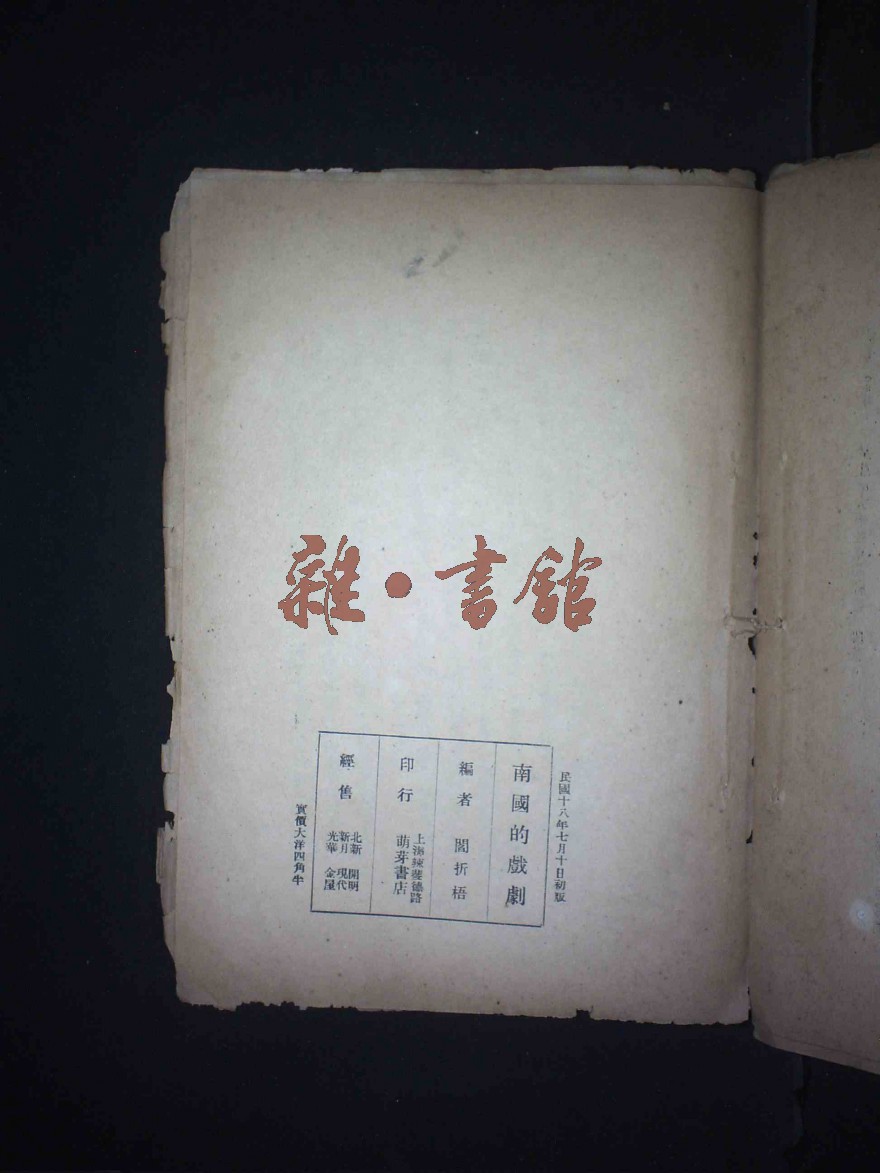 雜·書館
民國十八年七月十日初版
南國的戲劇
編者 閻折梧
印行 上海辣斐德路
萌芽書店
經售 北新 開明
新月 現代
光華 金屋
實價大洋四角半